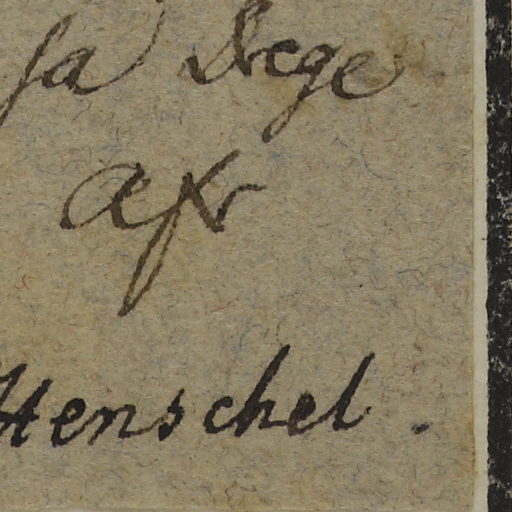 sa Dege
Afr
Henschel.